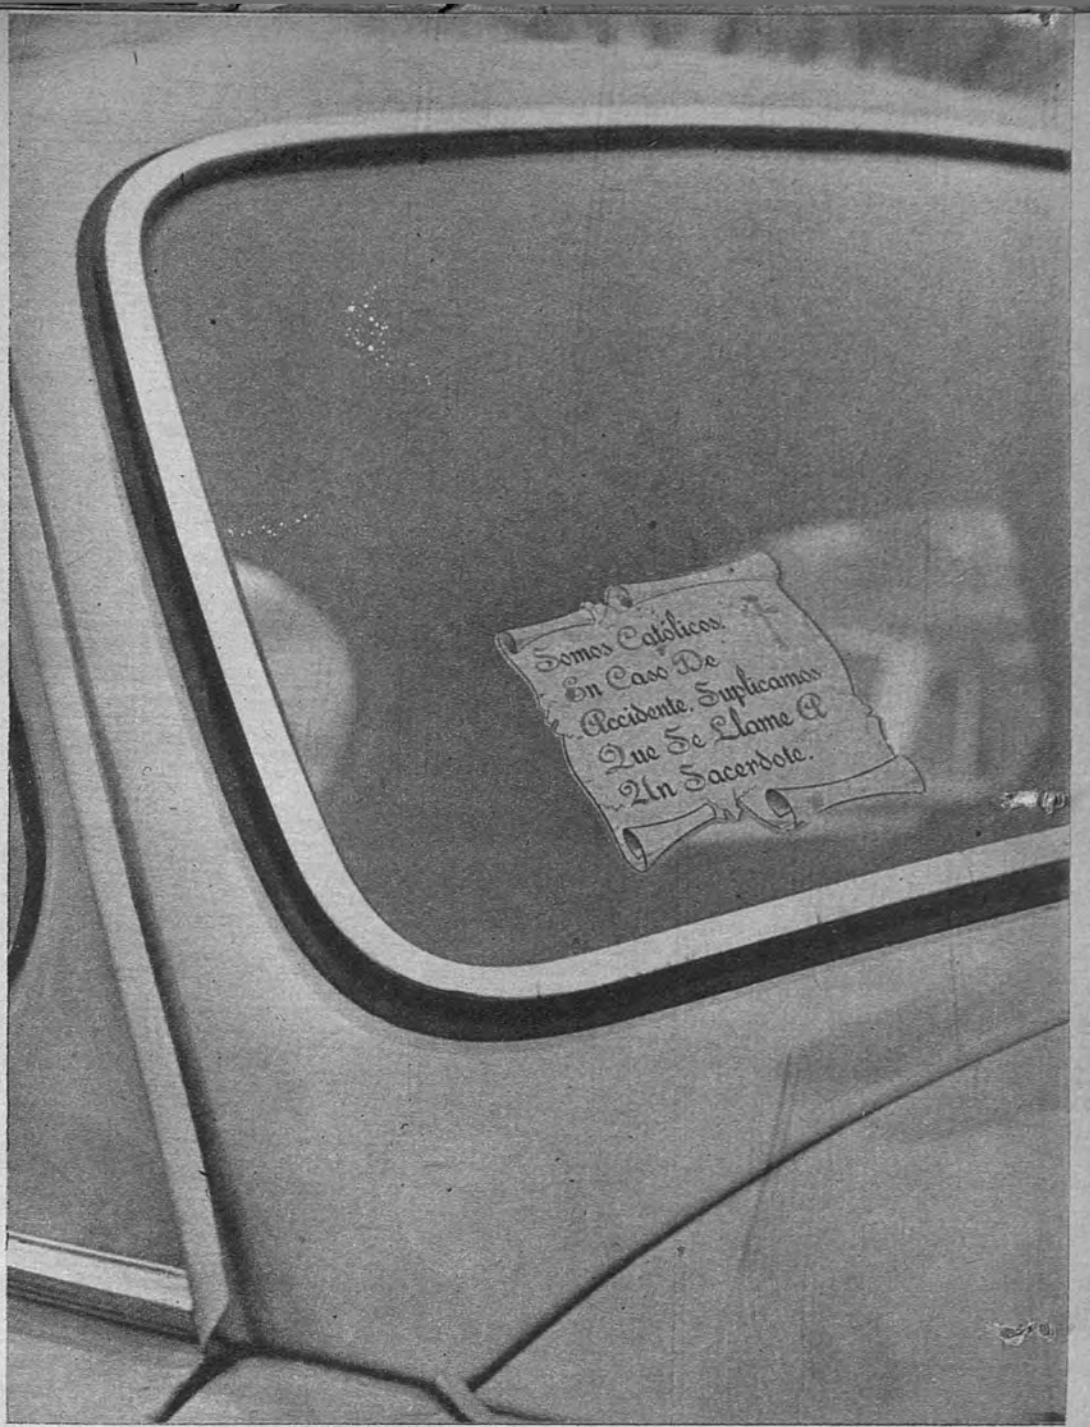 Somos Católicos.
En Caso De
Accidente, Suplicamos
Que Se Llame A
Un Sacerdote.